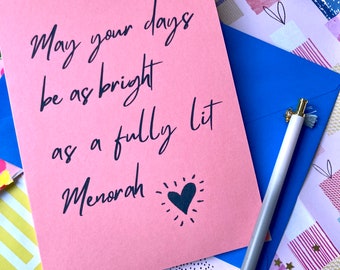 May your days
be as bright
as a fully lit
Menorah